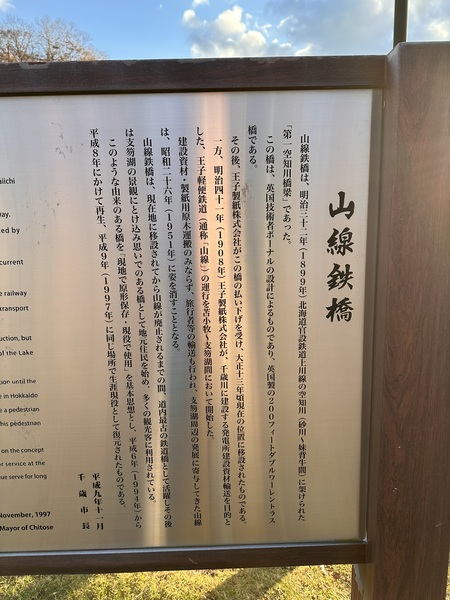 山線鉄橋
山線鉄橋は、明治三十二年(1899年)北海道官設鉄道上川線の空知川(砂川~妹背牛間)に架けられた
「第一空知川橋梁」であった。
この橋は、英国技術者ポーナルの設計によるものであり、英国製の200フィートダブルワーレントラス
橋である。
その後、王子製紙株式会社がこの橋の払い下げを受け、大正十三年頃現在の位置に移設されたものである。
一方、明治四十一年(1908年)王子製紙株式会社が、千歳川に建設する発電所建設資材輸送を目的と
した、王子軽便鉄道(通称「山線」)の運行を苫小牧~支笏湖間において開始した。
建設資材・製紙用原木運搬のみならず、旅行者等の輸送も行われ、支笏湖周辺の発展に寄与してきた山線
は、昭和二十六年(1951年)に姿を消すこととなる。
山線鉄橋は、現在地に移設されてから山線が廃止されるまでの間、道内最古の鉄道橋として活躍しその後
は支笏湖の景観にとけ込み思いでのある橋として地元住民を始め、多くの観光客に利用されている。
このような由来のある橋を「現地で原形保存・現役で使用」を基本思想とし、平成6年(1994年)から
平成8年にかけて再生、平成9年(1997年)に同じ場所で生涯現役として復元されたものである。
平成九年十一月
千歳市長
aiichi
way.
ed by
current
e railway
transport
uction, but
of the Lake
oon until the
e in Hokkaido
e a pedestrian
this pedestrian
on the concept
r service at the
ue serve for long
November, 1997
Mayor of Chitose